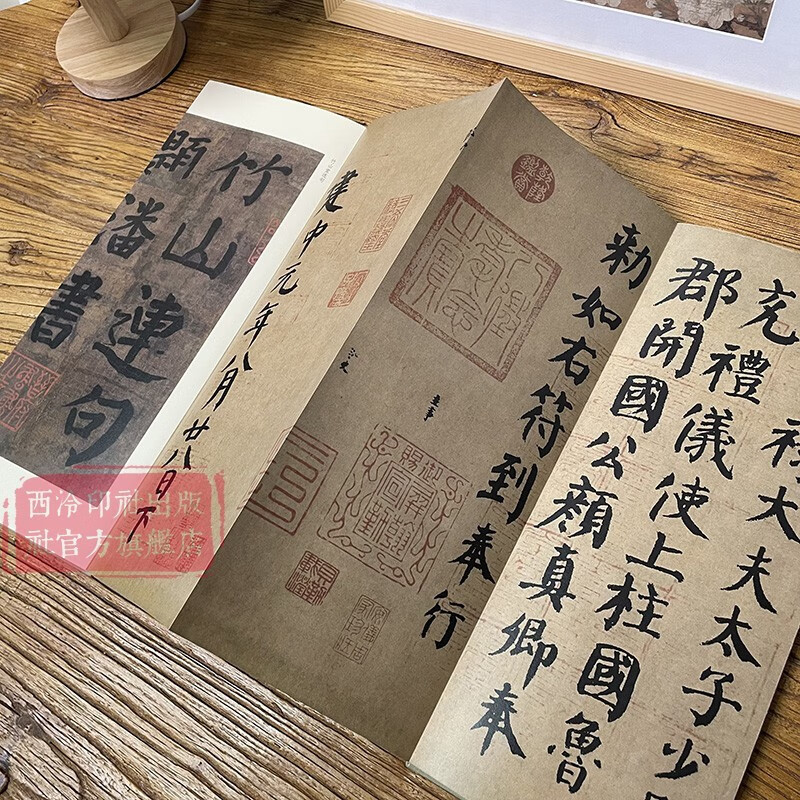 祿大夫太子少
充禮儀使上柱國魯
郡開國公顏真卿奉
勑如右符到奉行
主事
令史
建中元年八月廿八日下
竹山連句
顯潘書
西泠印社出版
社官方旗艦店